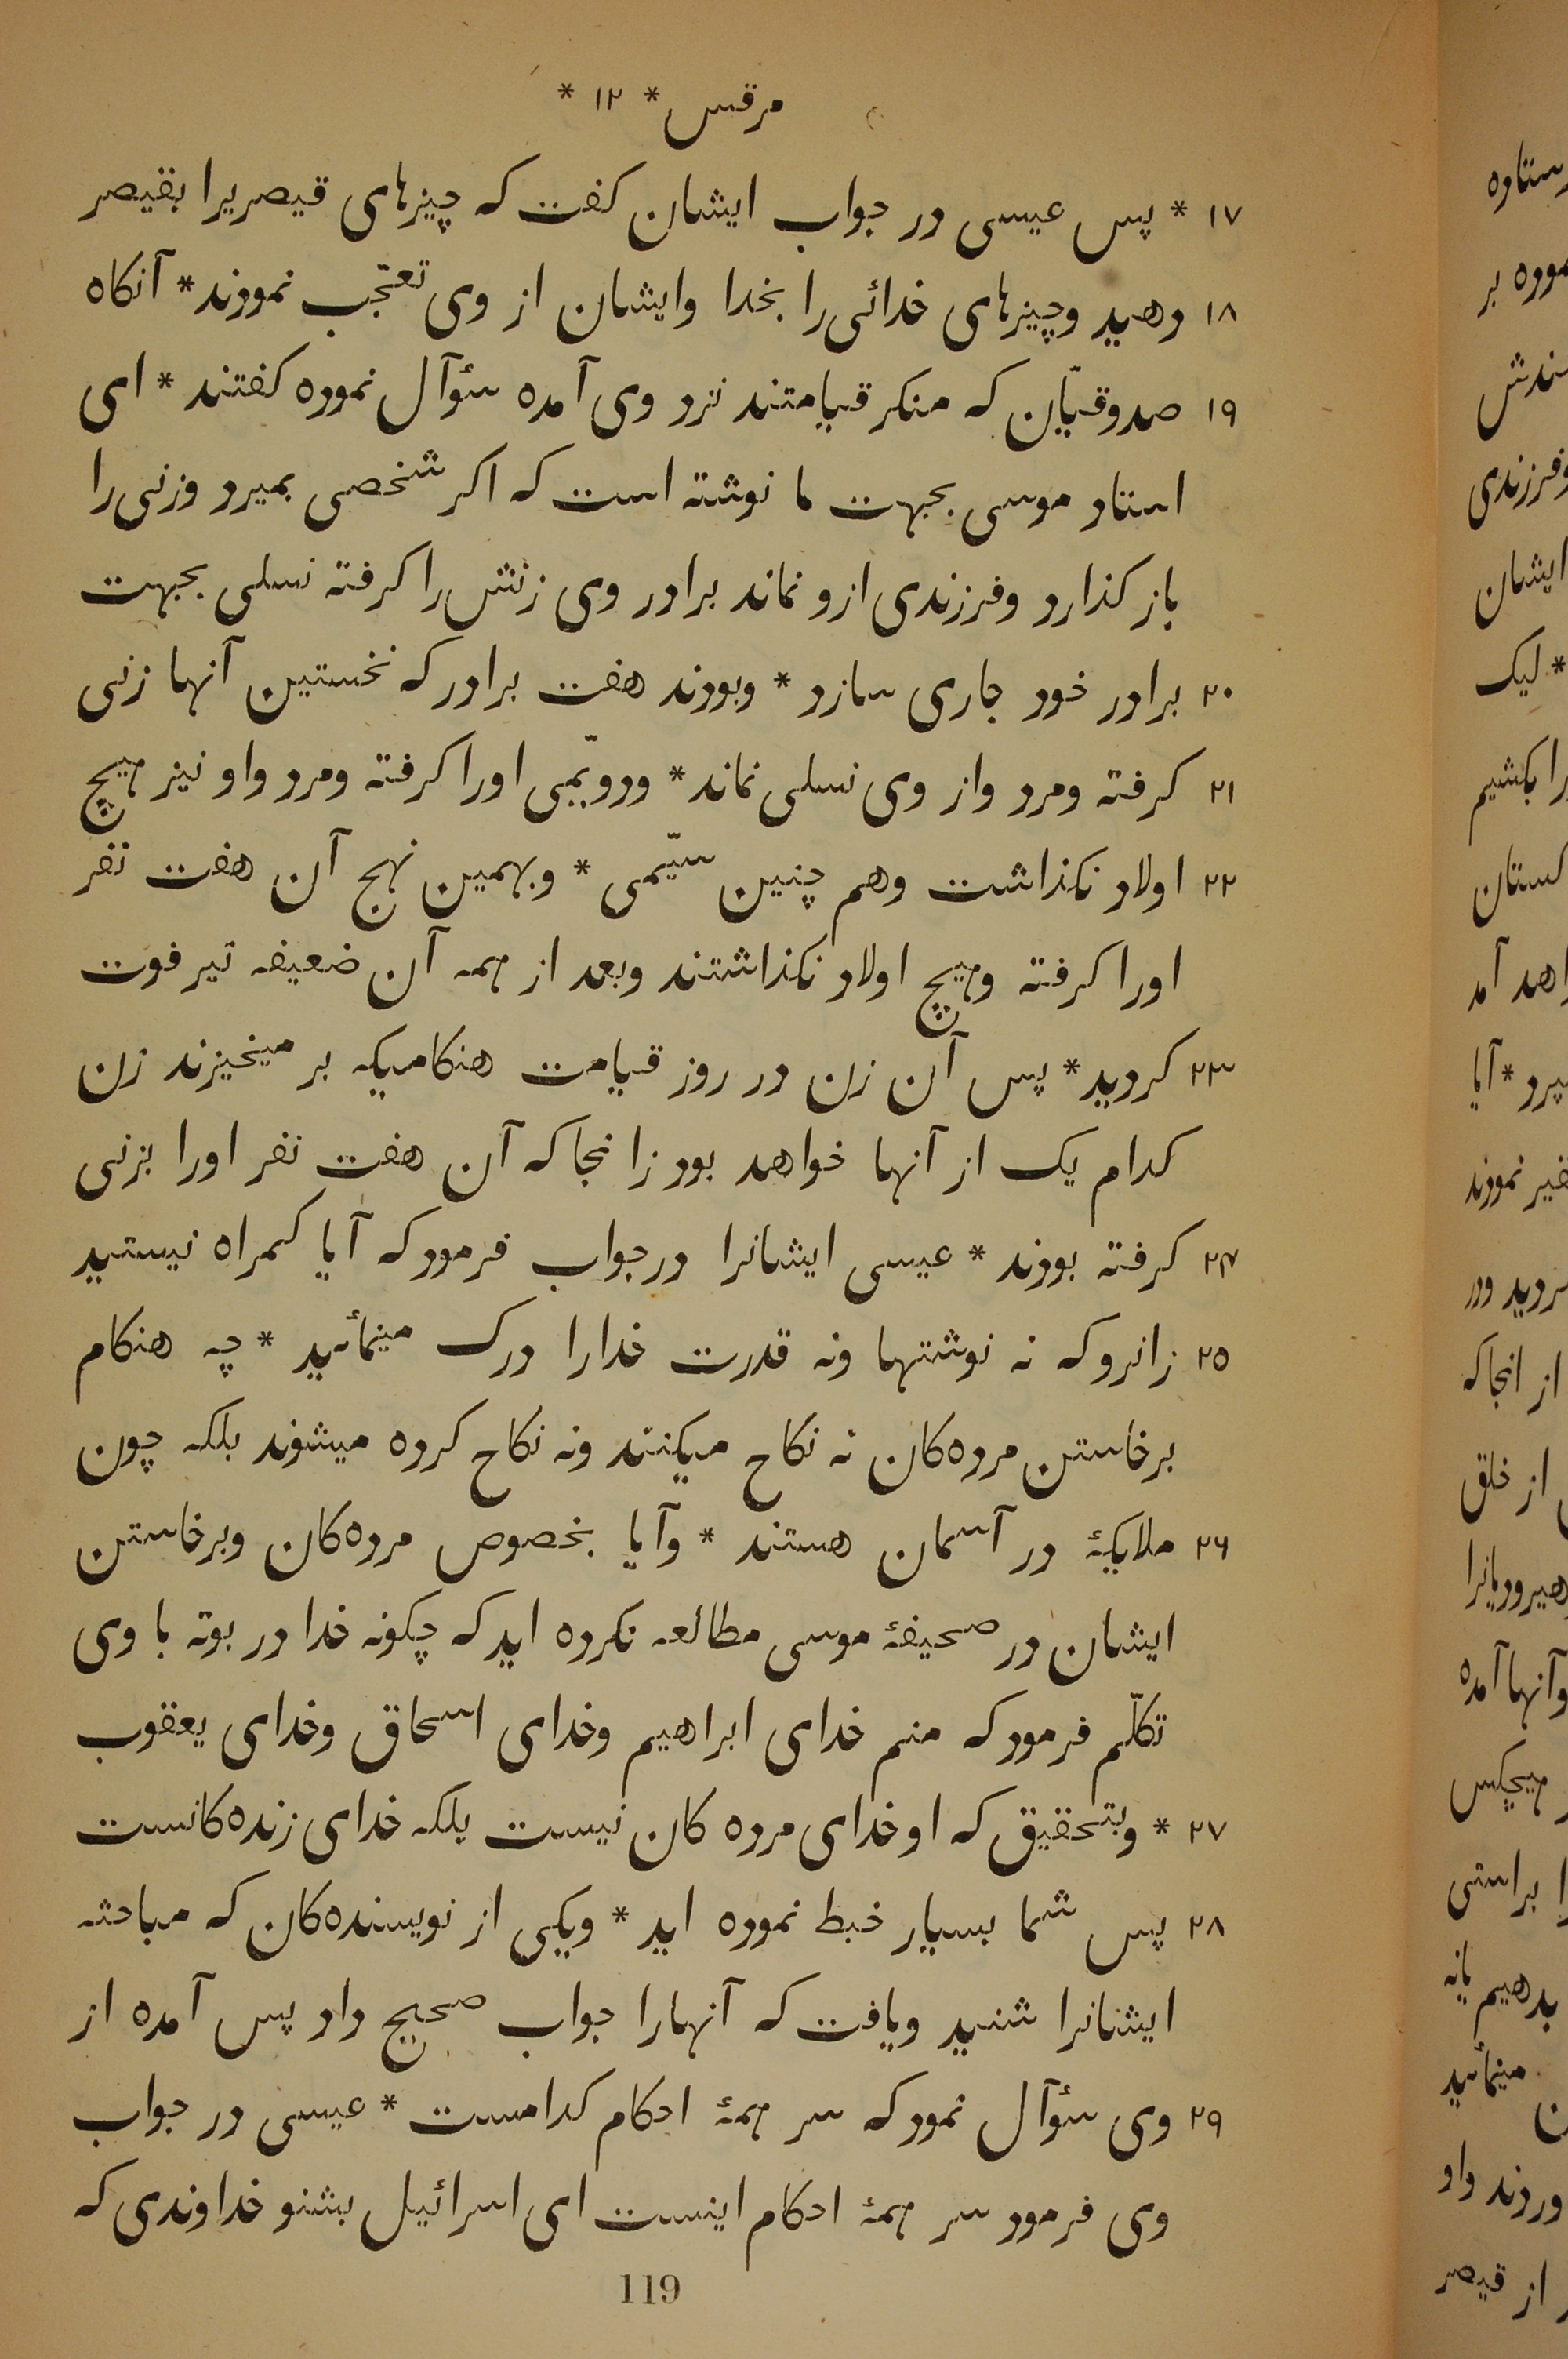 مرقس * ۱۲ *
۱۷ * پس عیسی در جواب ایشان کفت که چیزهای قیصریرا بقیصر
۱۸ دهید وچیزهای خدائی را بخدا وایشان از وی تعجّب نمودند * آنکاه
۱۹ صدوقیّان که منکر قیامتند نزد وی آمده سئوآل نموده کفتند * ای
استاد موسی بجهت ما نوشته است که اکر شخصی بمیرد وزنی را
باز کذارد وفرزندی ازو نماند برادر وی زنش را کرفته نسلی بجهت
۲۰ برادر خود جاری سازد * وبودند هفت برادر که نخستین آنها زنی
۲۱ کرفته ومرد واز وی نسلی نماند * ودویّمی اورا کرفته ومرد واو نیز هیچ
۲۲ اولاد نکذاشت وهم چنین سیّمی * وبهمین نهج آن هفت نفر
اورا کرفته وهیچ اولاد نکذاشتند وبعد از همه آن ضعیفه نیز فوت
۲۳ کردید * پس آن زن در روز قیامت هنکامیکه بر میخیزند زن
کدام یک از آنها خواهد بود زانجا که آن هفت نفر اورا بزنی
۲۴ کرفته بودند * عیسی ایشانرا در جواب فرمود که آیا کمراه نیستید
۲۵ زانرو که نه نوشتها ونه قدرت خدارا درک مینمائید * چه هنکام
برخاستن مرده‌کان نه نکاح میکنند ونه نکاح کرده میشوند بلکه چون
۲۶ ملایکهٔ در آسمان هستند * وآیا بخصوص مرده‌کان وبرخاستن
ایشان در صحیفهٔ موسی مطالعه نکرده اید که چکونه خدا در بوته با وی
تکلّم فرمود که منم خدای ابراهیم وخدای اسحاق وخدای یعقوب
۲۷ * وبتحقیق که او خدای مرده کان نیست بلکه خدای زنده‌کانست
۲۸ پس شما بسیار خبط نموده اید * ویکی از نویسنده‌کان که مباحثه
ایشانرا شنید ویافت که آنهارا جواب صحیح داد پس آمده از
۲۹ وی سئوآل نمود که سر همهٔ احکام کدامست * عیسی در جواب
وی فرمود سر همهٔ احکام اینست ای اسرائیل بشنو خداوندی که
119